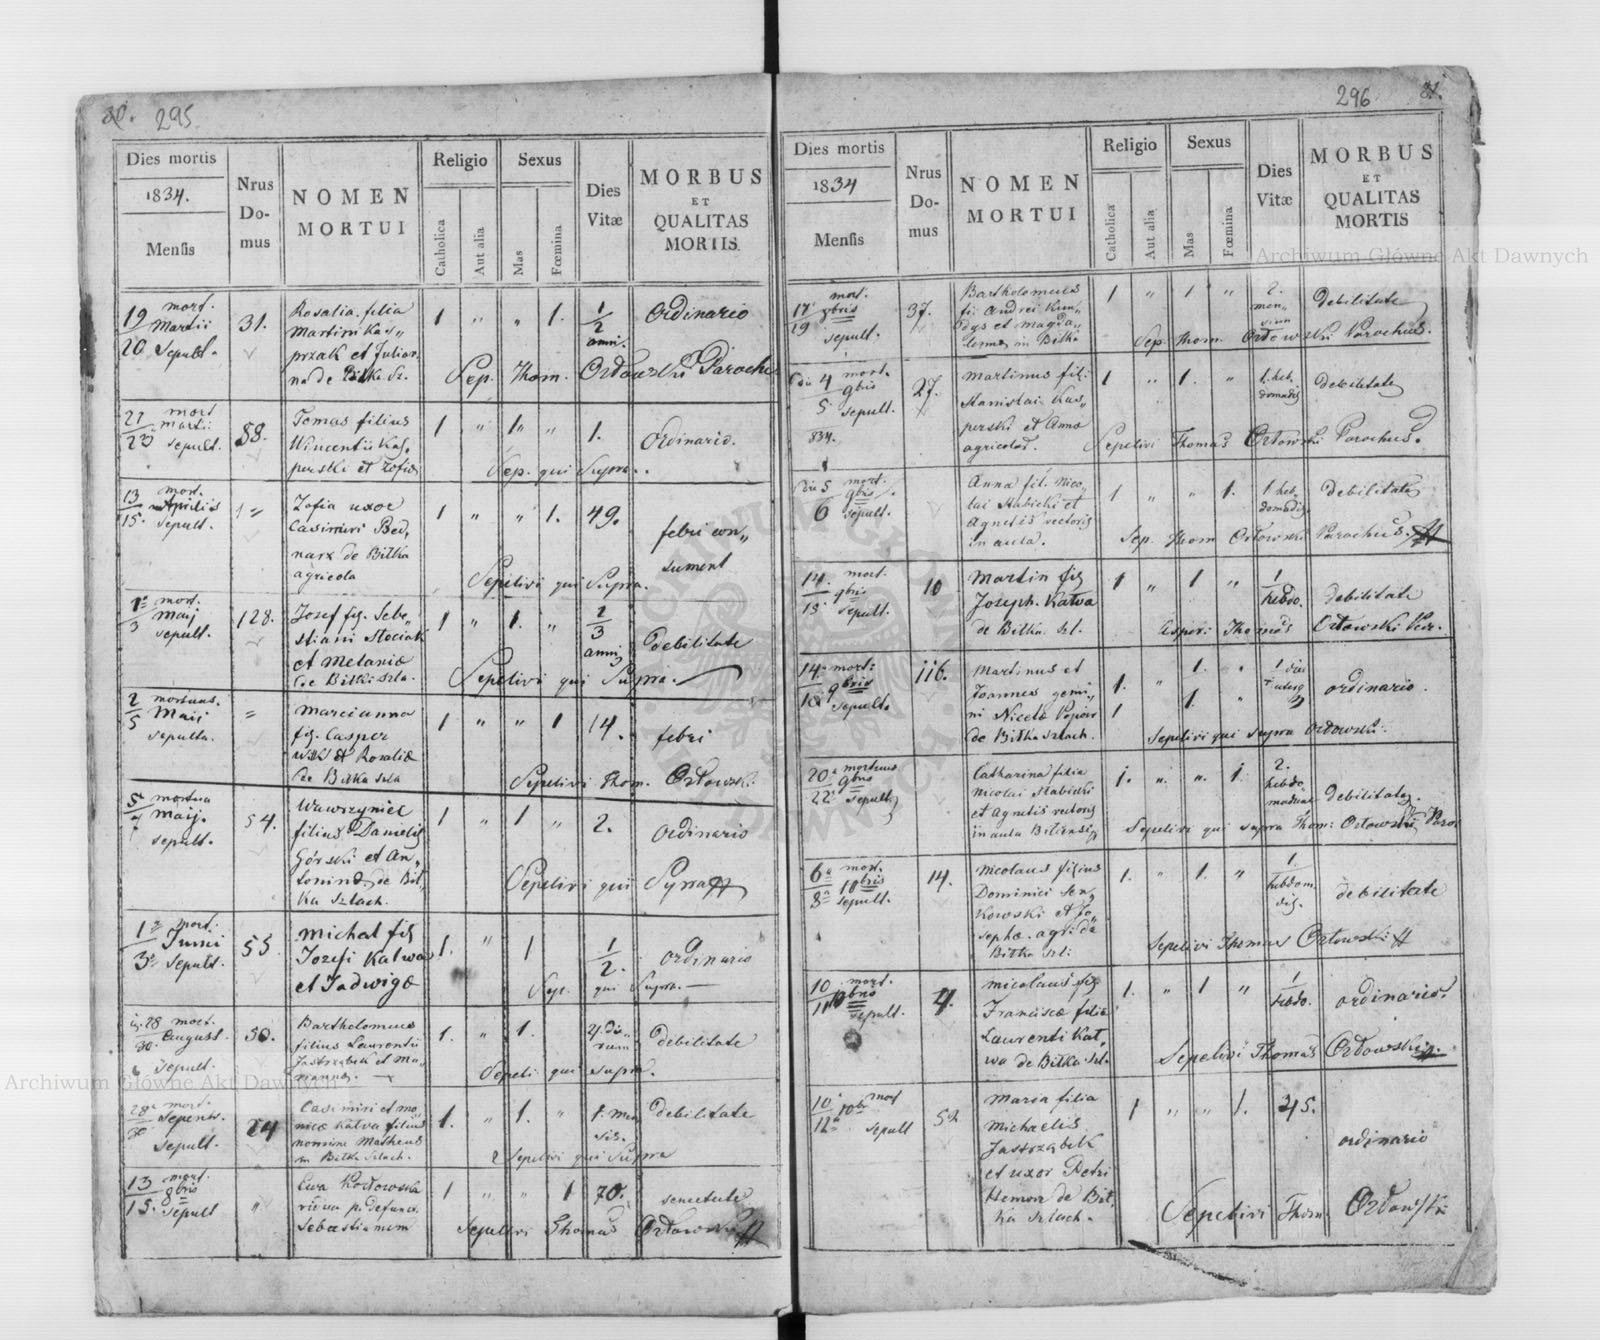 80. 295.
Dies mortis
1834.
Mensis
Nrus
Do-
mus
NOMEN
MORTUI
Religio
Catholica
Aut alia
Sexus
Mas
Fœmina
Dies
Vitæ
MORBUS
ET
QUALITAS
MORTIS.
19 mort.
Martii
20 Sepult.
31.
Rosalia filia
Martini Kas„
przak et Julian„
na de Bitka Sz.
1 „ „ 1.
1/2
anni.
Ordinario
Sep. Thom. Orłowski Paroch
21 mort
martii
23 sepult.
58.
Tomas filius
Wincentii Kas„
perski et Zofia
1 „ 1„ „ 1.
Ordinario.
Sep. qui Supra.
13 mort.
Aprilis
15. sepult.
Zofia uxor
Casimiri Bed„
narz de Bitka
agricola
1 „ „ 1. 49.
febri con„
sument
Sepelivi qui Supra.
1 mort.
Maij
3 sepult.
128.
Josef fiz. Sebe„
stiani Stociak
et Melaniæ
de Bitki szla.
1 „ 1. „
2/3
anni
debilitate
Sepelivi qui Supra.
2 mortuus.
Maij
5 sepulta.
„
Marcianna
fiz. Casper
et Rosaliæ
de Bitka szla
1 „ „ 1 14.
febri
Sepelivi Thom. Orłowski.
5 mortua
Maij.
7 sepult.
54.
Wawrzyniec
filius Danielis
Górski et An„
toninæ de Bit„
ka Szlach.
1 „ 1 „ 2.
ordinario
Sepelivi qui Supra
1 mort.
Junii
3 Sepult.
55
Michal fiz
Jozefi Kalwa
et Jadwigæ
1. „ 1
1/2.
ordinario
Sep. qui Supra.
28 mort.
August.
30. Sepult.
50.
Bartholomeus
filius Laurentii
Jastrzabek et Ma„
riannæ.
1. „ 1.
4 die„
rum
debilitate
Sepeli. qui supra.
28 mort.
Septem.
30 sepult.
24
Casimiri et Mo„
nicæ Kalwa filius
nomine Matheus
in Bitka Szlach.
1. „ 1. „
1. men
sis.
debilitate
Sepelivi qui Supra
13 mort.
8bris
15. sepult
„
Ewa Kozłowska
vidua p. defunct.
Sebastianum
1 „ „ 1 70.
senectute
Sepelivi Thomas Orłowski
296 81.
Dies mortis
1834
Mensis
Nrus
Do-
mus
NOMEN
MORTUI
Religio
Catholica
Aut alia
Sexus
Mas
Fœmina
Dies
Vitæ
MORBUS
ET
QUALITAS
MORTIS
Archiwum Główne Akt Dawnych
17 mort.
8bris
19 sepult.
37.
Bartholomeus
fi. Andrei Kun„
dys et Magda„
lennæ in Bitka
1 „ 1 „
2.
men„
sium
debilitate
Sep. Thom. Orłowski Parochus.
die 4 mort.
9bris
5 sepult.
834.
27.
Martinus fil:
Stanislai Kas„
perski et Anna
agricolæ.
1 „ 1. „
1. heb.
domadis
debilitate
Sepelivi Thomas Orłowski Parochus.
die 5 mort.
9bris
6 sepult.
Anna fil. Nico„
lai Stabicki et
Agnetis rectoris
in aula.
1 „ „ 1.
1 heb„
domadis
debilitate
Sep. Thom Orłowski Parochus.
14. mort.
9bris
15 sepult.
10
Martin fiz
Joseph. Kalwa
de Bitka. szl.
1 „ 1 „
1
hebdo.
debilitate
Thomas Orłowski Par.
14 mort:
9bris
16 sepult.
116.
Martinus et
Joannes gemi„
ni Nicolæ
de Bitka szlach.
1. „ 1. „
1 „ 1.
1 die
ordinario.
Sepelivi qui supra Orłowski.
20 mortuus
9bris
22 sepult.
Catharina filia
Nicolai Stabicki
et Agnetis rectoris
in aula
1. „ „ 1.
2.
hebdo„
madum
debilitate.
Sepelivi qui supra Thom: Orłowski Paro
6 mort.
10bris
8 sepult.
14.
Nicolaus filius
Dominici Sen„
kowski et Jo„
sephæ. agri: de
Bitka Szl:
1. „ 1. „
1
hebdom.
dis.
debilitate
Sepelivi Thomas Orłowski
10 mort.
10bris
11 sepult.
4.
Nicolaus fiz
Franciscæ filiæ
Laurenti Kal„
wa de Bitka szl.
1. „ 1 „
1
hebdo.
ordinario.
Sepelivi Thomas Orłowski.
10 mort
10br
12 sepult
52
Maria filia
Michaelis
Jastrząbek
et uxor Petri
Hemon de Bit„
ka szlach.
1 „ „ 1. 45.
ordinario
Sepelivi Thom. Orłowski
Archiwum Główne Akt Dawnych